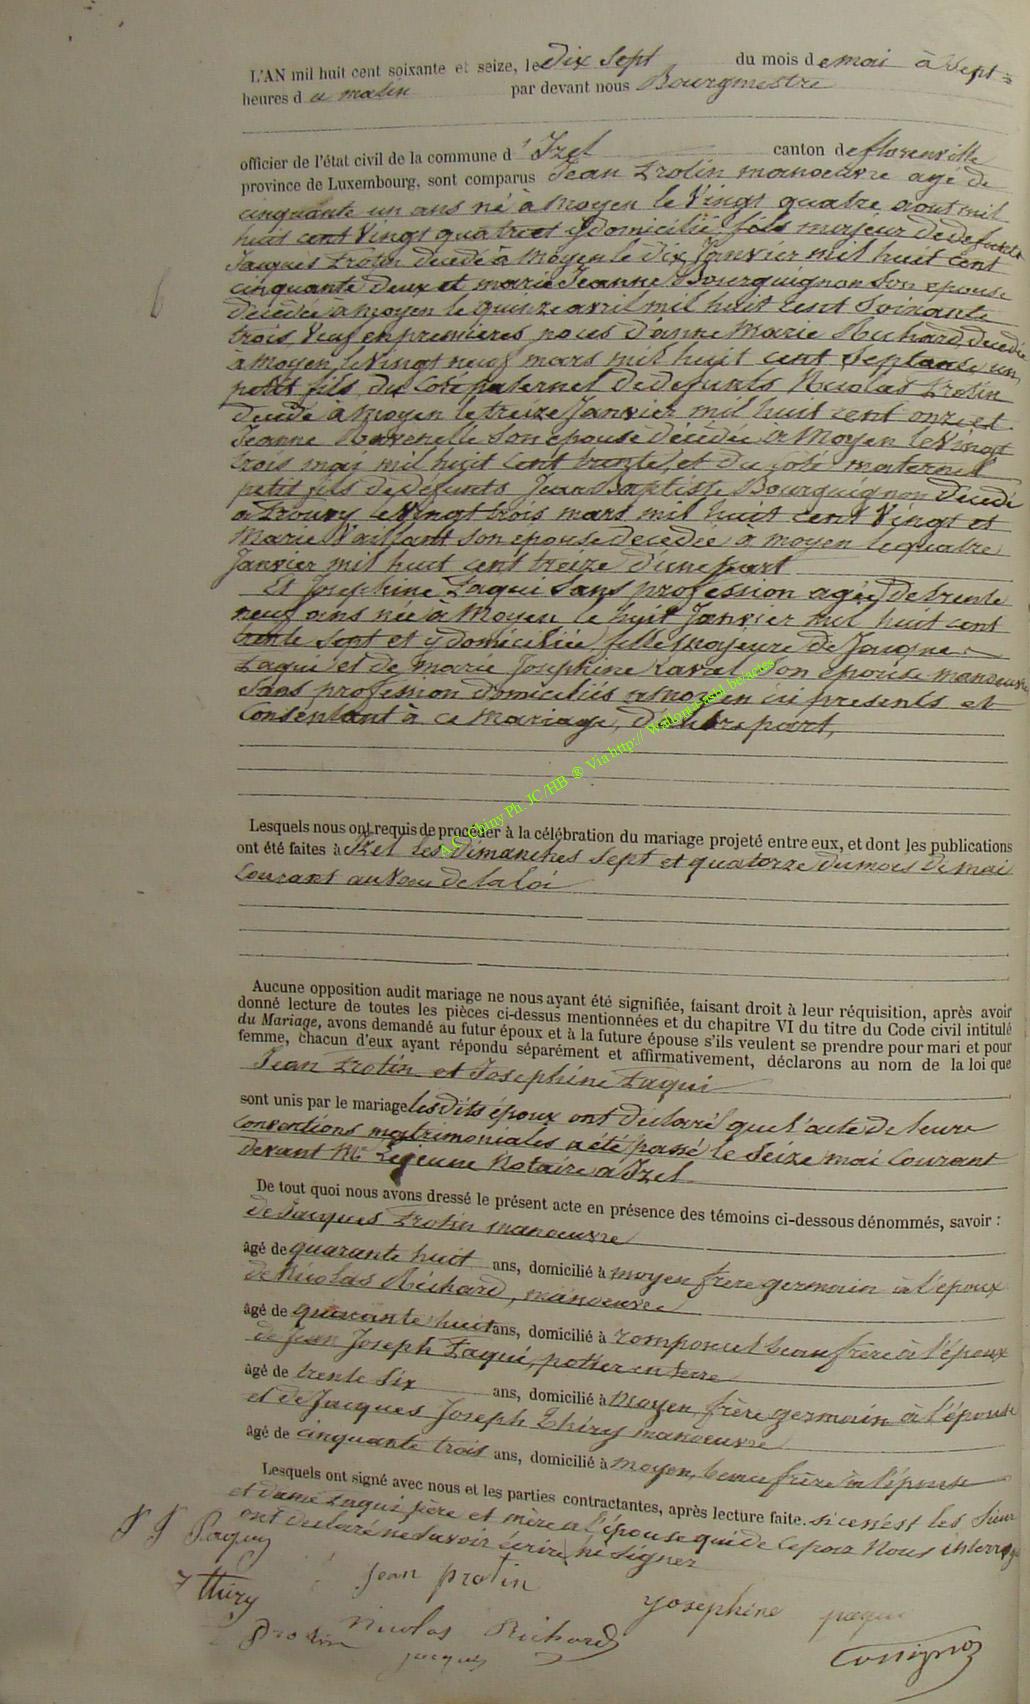 L'AN mil huit cent soixante et seize, le dix sept du mois de mai à Sept
heures du matin par devant nous Bourgmestre
officier de l'état civil de la commune d'Izel canton de florenville
province de Luxembourg, sont comparus Jean Protin manoeuvre agé de
cinquante un ans né à Moyen le Vingt quatre aout mil
huit cent Vingt quatre et y domicilié, fils majeur de defunts
Jacques Protin decedé à Moyen le dix Janvier mil huit cent
cinquante deux et marie Jeanne Bourguignon Son epouse
décédée à Moyen le quinze avril mil huit cent Soixante
trois Veuf en premieres noces d'anne Marie Richard decedée
à Moyen le Vingt neuf mars mil huit cent Septante un,
petit fils du Coté paternel de defunts Nicolas Protin
decedé à Moyen le treize Janvier mil huit cent onze et
Jeanne Ravenelle Son epouse décédée à Moyen le Vingt
trois mai mil huit cent trente, et du coté maternel
petit fils de defunts Jean Baptiste Bourguignon decedé
a Prouvy le Vingt trois mars mil huit cent Vingt et
Marie Vaillant Son epouse decedée à moyen le quatre
Janvier mil huit cent treize d'une part
Et Josephine Paqui Sans profession agée de trente
neuf ans née à Moyen le huit Janvier mil huit cent
trente Sept et y domiciliée, fille majeure de Jacque
Paqui et de Marie Josephine Laval Son epouse manoeuvre
Sans profession domiciliés a moyen ici presents et
Consentant à ce Mariage, d'autre part,
Lesquels nous ont requis de procéder à la célébration du mariage projeté entre eux, et dont les publications
ont été faites à Izel les dimanches Sept et quatorze du mois de mai
Courant au Voeu de la loi
Aucune opposition audit mariage ne nous ayant été signifiée, faisant droit à leur réquisition, après avoir
donné lecture de toutes les pièces ci-dessus mentionnées et du chapitre VI du titre du Code civil intitulé
du Mariage, avons demandé au futur époux et à la future épouse s'ils veulent se prendre pour mari et pour
femme, chacun d'eux ayant répondu séparément et affirmativement, déclarons au nom de la loi que
Jean Protin et Josephine Paqui
sont unis par le mariage lesdits époux ont déclaré que l'acte de leurs
conventions matrimoniales a été passé le Seize mai Courant
devant Me Lejeune Notaire a Izel
De tout quoi nous avons dressé le présent acte en présence des témoins ci-dessous dénommés, savoir :
de Jacques Protin manoeuvre
âgé de quarante huit ans, domicilié à moyen frère germain à l'époux
de Nicolas Richard, manoeuvre
âgé de quarante huit ans, domicilié à romponcel beau frère à l'époux
de Jean Joseph Paqui, potier en terre
âgé de trente Six ans, domicilié à Moyen frère germain à l'épouse
et de Jacques Joseph Thiry manoeuvre
âgé de cinquante trois ans, domicilié à Moyen, beau frère à l'épouse
Lesquels ont signé avec nous et les parties contractantes, après lecture faite. si ce n'est les Sieur
et dame Paqui père et mère a l'épouse qui de ce par Nous interrogé
ont declaré ne Savoir écrire ni Signer
J J Paquy
Jean protin
Josephine paqui
J thiry
Nicolas Richard
Protin
jacques
A.C. Chiny Ph. JC/HB ® Via http:// Wallonia-asbl.be/actes
6